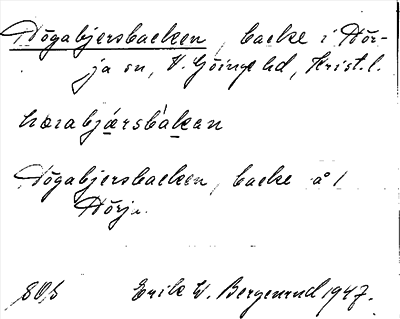 Högabjersbacken, backe i Hör-
ja sn, V. Göinge hd, Krist. l.
hœrabjársbákan
Högabjersbacken, backe å 1
Hörja.
Erik W. Bergenrud 1947.